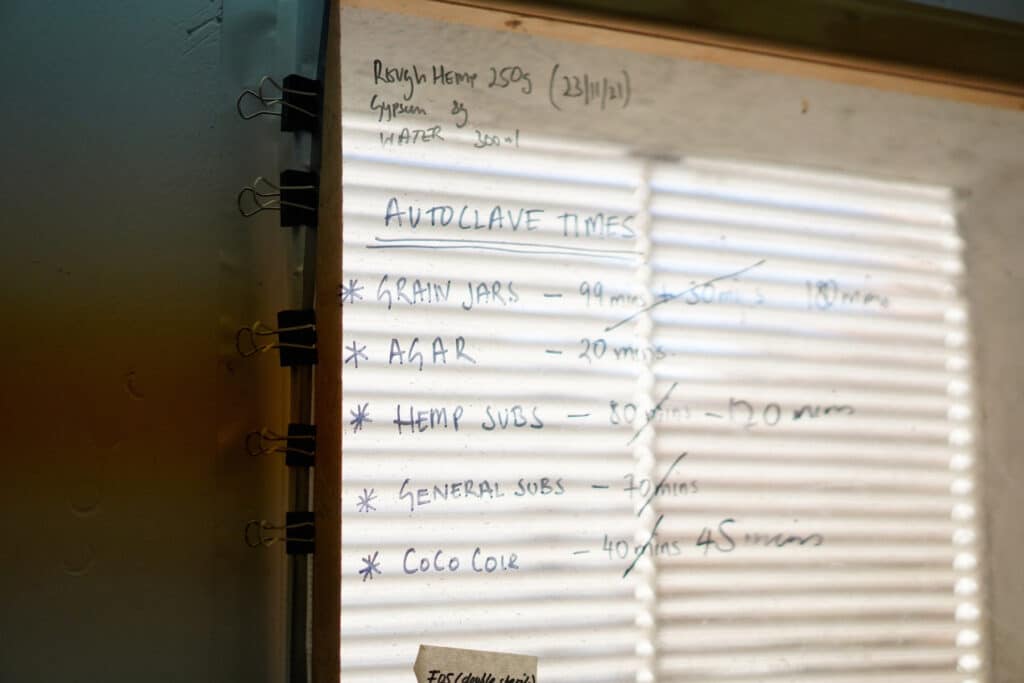 Rough Hemp 250g (23/11/21)
Gypsum 8g
WATER 300ml
AUTOCLAVE TIMES
* GRAIN JARS – 99 mins + 30 mins 180 mins
* AGAR – 20 mins.
* HEMP SUBS – 80 mins – 120 mins
* GENERAL SUBS – 70 mins
* COCO COIR – 40 mins 45 mins